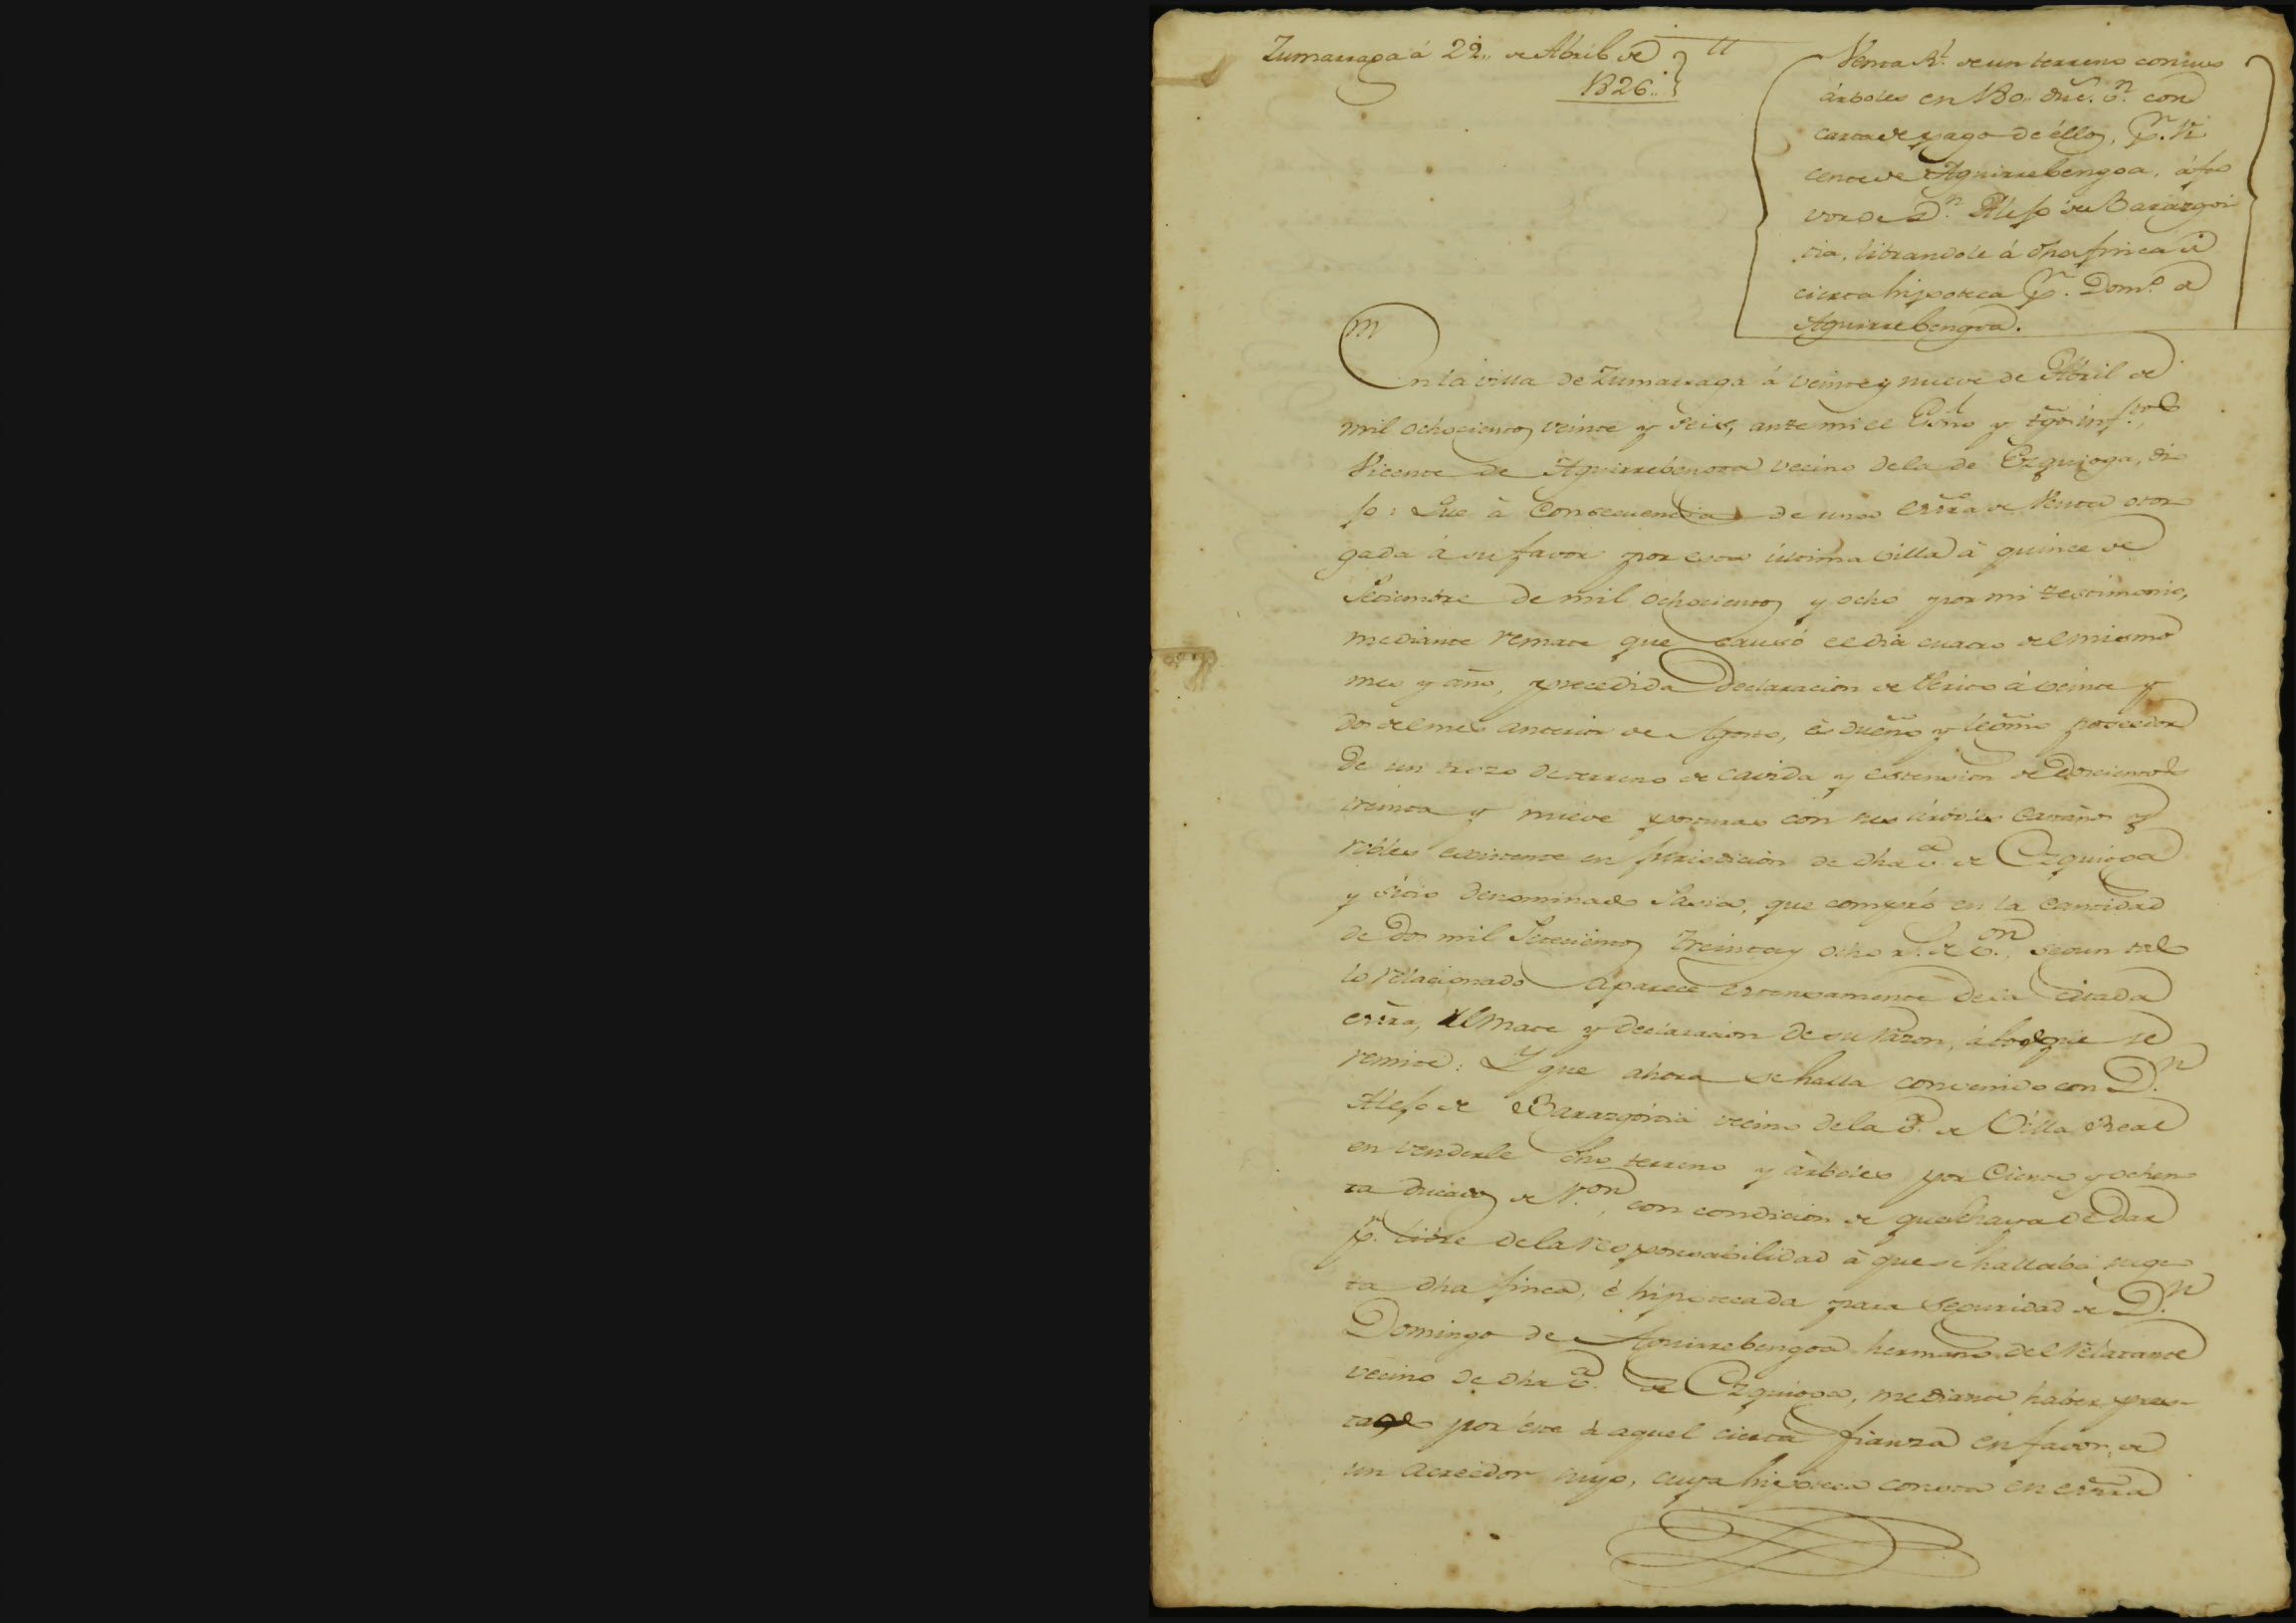 Zumarraga á 29,, de Abril de
1826,,
Venta Rl. de un terreno con sus
árboles en 180,, duc.s vn. con
carta de pago de éllos, pr. Vi
cente de Aguirrebengoa, á fa
vor de Dn. Alejo de Barazgoi
tia, librandole á dha finca de
cierta hipoteca pr. Domo. de
Aguirrebengoa.
En la villa de Zumarraga á veinte y nueve de Abril de
mil ochocientos veinte y seis, ante mi el Esno y tgos infros.
Vicente de Aguirrebengoa vecino de la de Ezquioga, di
jo: Que à consecuencia de una esrra de Venta otor
gada á su favor por esta última villa à quince de
Setiembre de mil ochocientos y ocho por mi testimonio,
mediante remate que causó el dia cuatro del mismo
mes y año, precedida declaracion de Perito á veinte y
dos del mes anterior de Agosto, és dueño y lexmo poseedor
de un trozo de terreno de cavida y estension de doscientos
treinta y nueve posturas con sus árboles castaños y
robles existente en jurisdicion de dha va. de Ezquioga
y sitio denominado Sasia, que compró en la cantidad
de dos mil setecientos treinta y ocho rs. de von. segun tal
lo relacionado aparece estensamente de la citada
esrra, remate y declaracion de su razon, á los que se
remite: Y que ahora se halla convenido con Dn.
Alejo de Barazgoitia vecino de la va. de Villa Real
en venderle dho terreno y àrboles por ciento y ochen
ta ducados de Von., con condicion de que se haya de dar
pr. libre de la responsabilidad à que se hallaba suge
ta dha finca, é hipotecada para seguridad de Dn.
Domingo de Aguirrebengoa hermano del relatante
vecino de dha va. de Ezquioga, mediante haber pres-
tado por éste à aquel cierta fianza en favor de
un acreedor suyo, cuya hipoteca consta en esrra